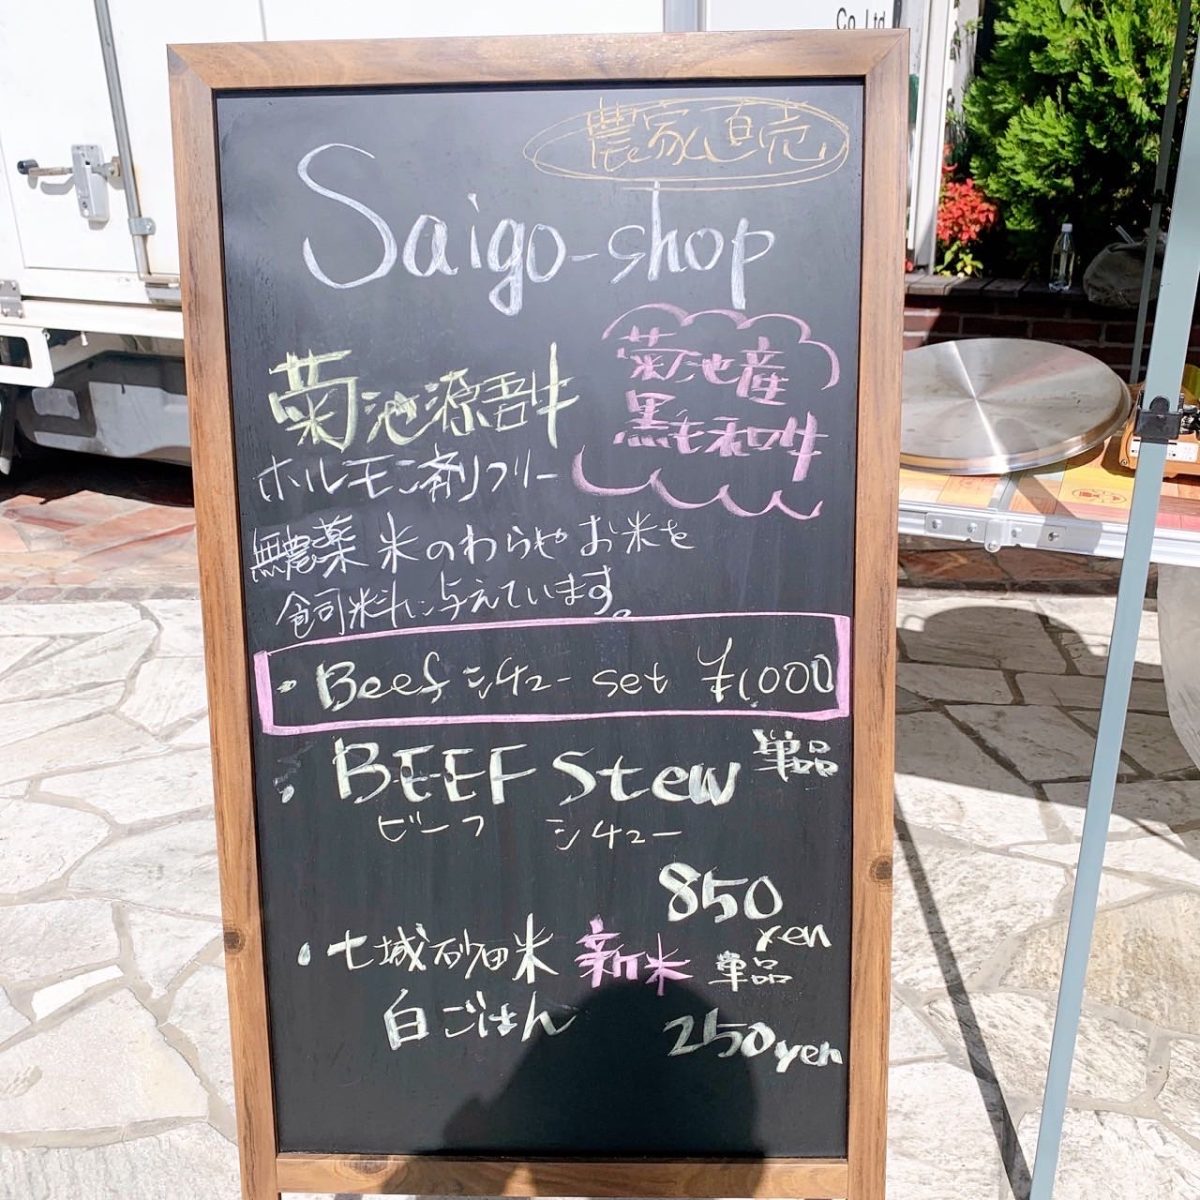 Co.,Ltd
農家直売
Saigo-shop
菊池源吾牛
菊池産
黒毛和牛
ホルモン剤フリー
無農薬米のわらやお米を
飼料に与えています。
・Beef シチュー set ¥1,000
・BEEF Stew 単品
ビーフ シチュー
850
yen
・七城砂田米 新米 単品
白ごはん 250yen